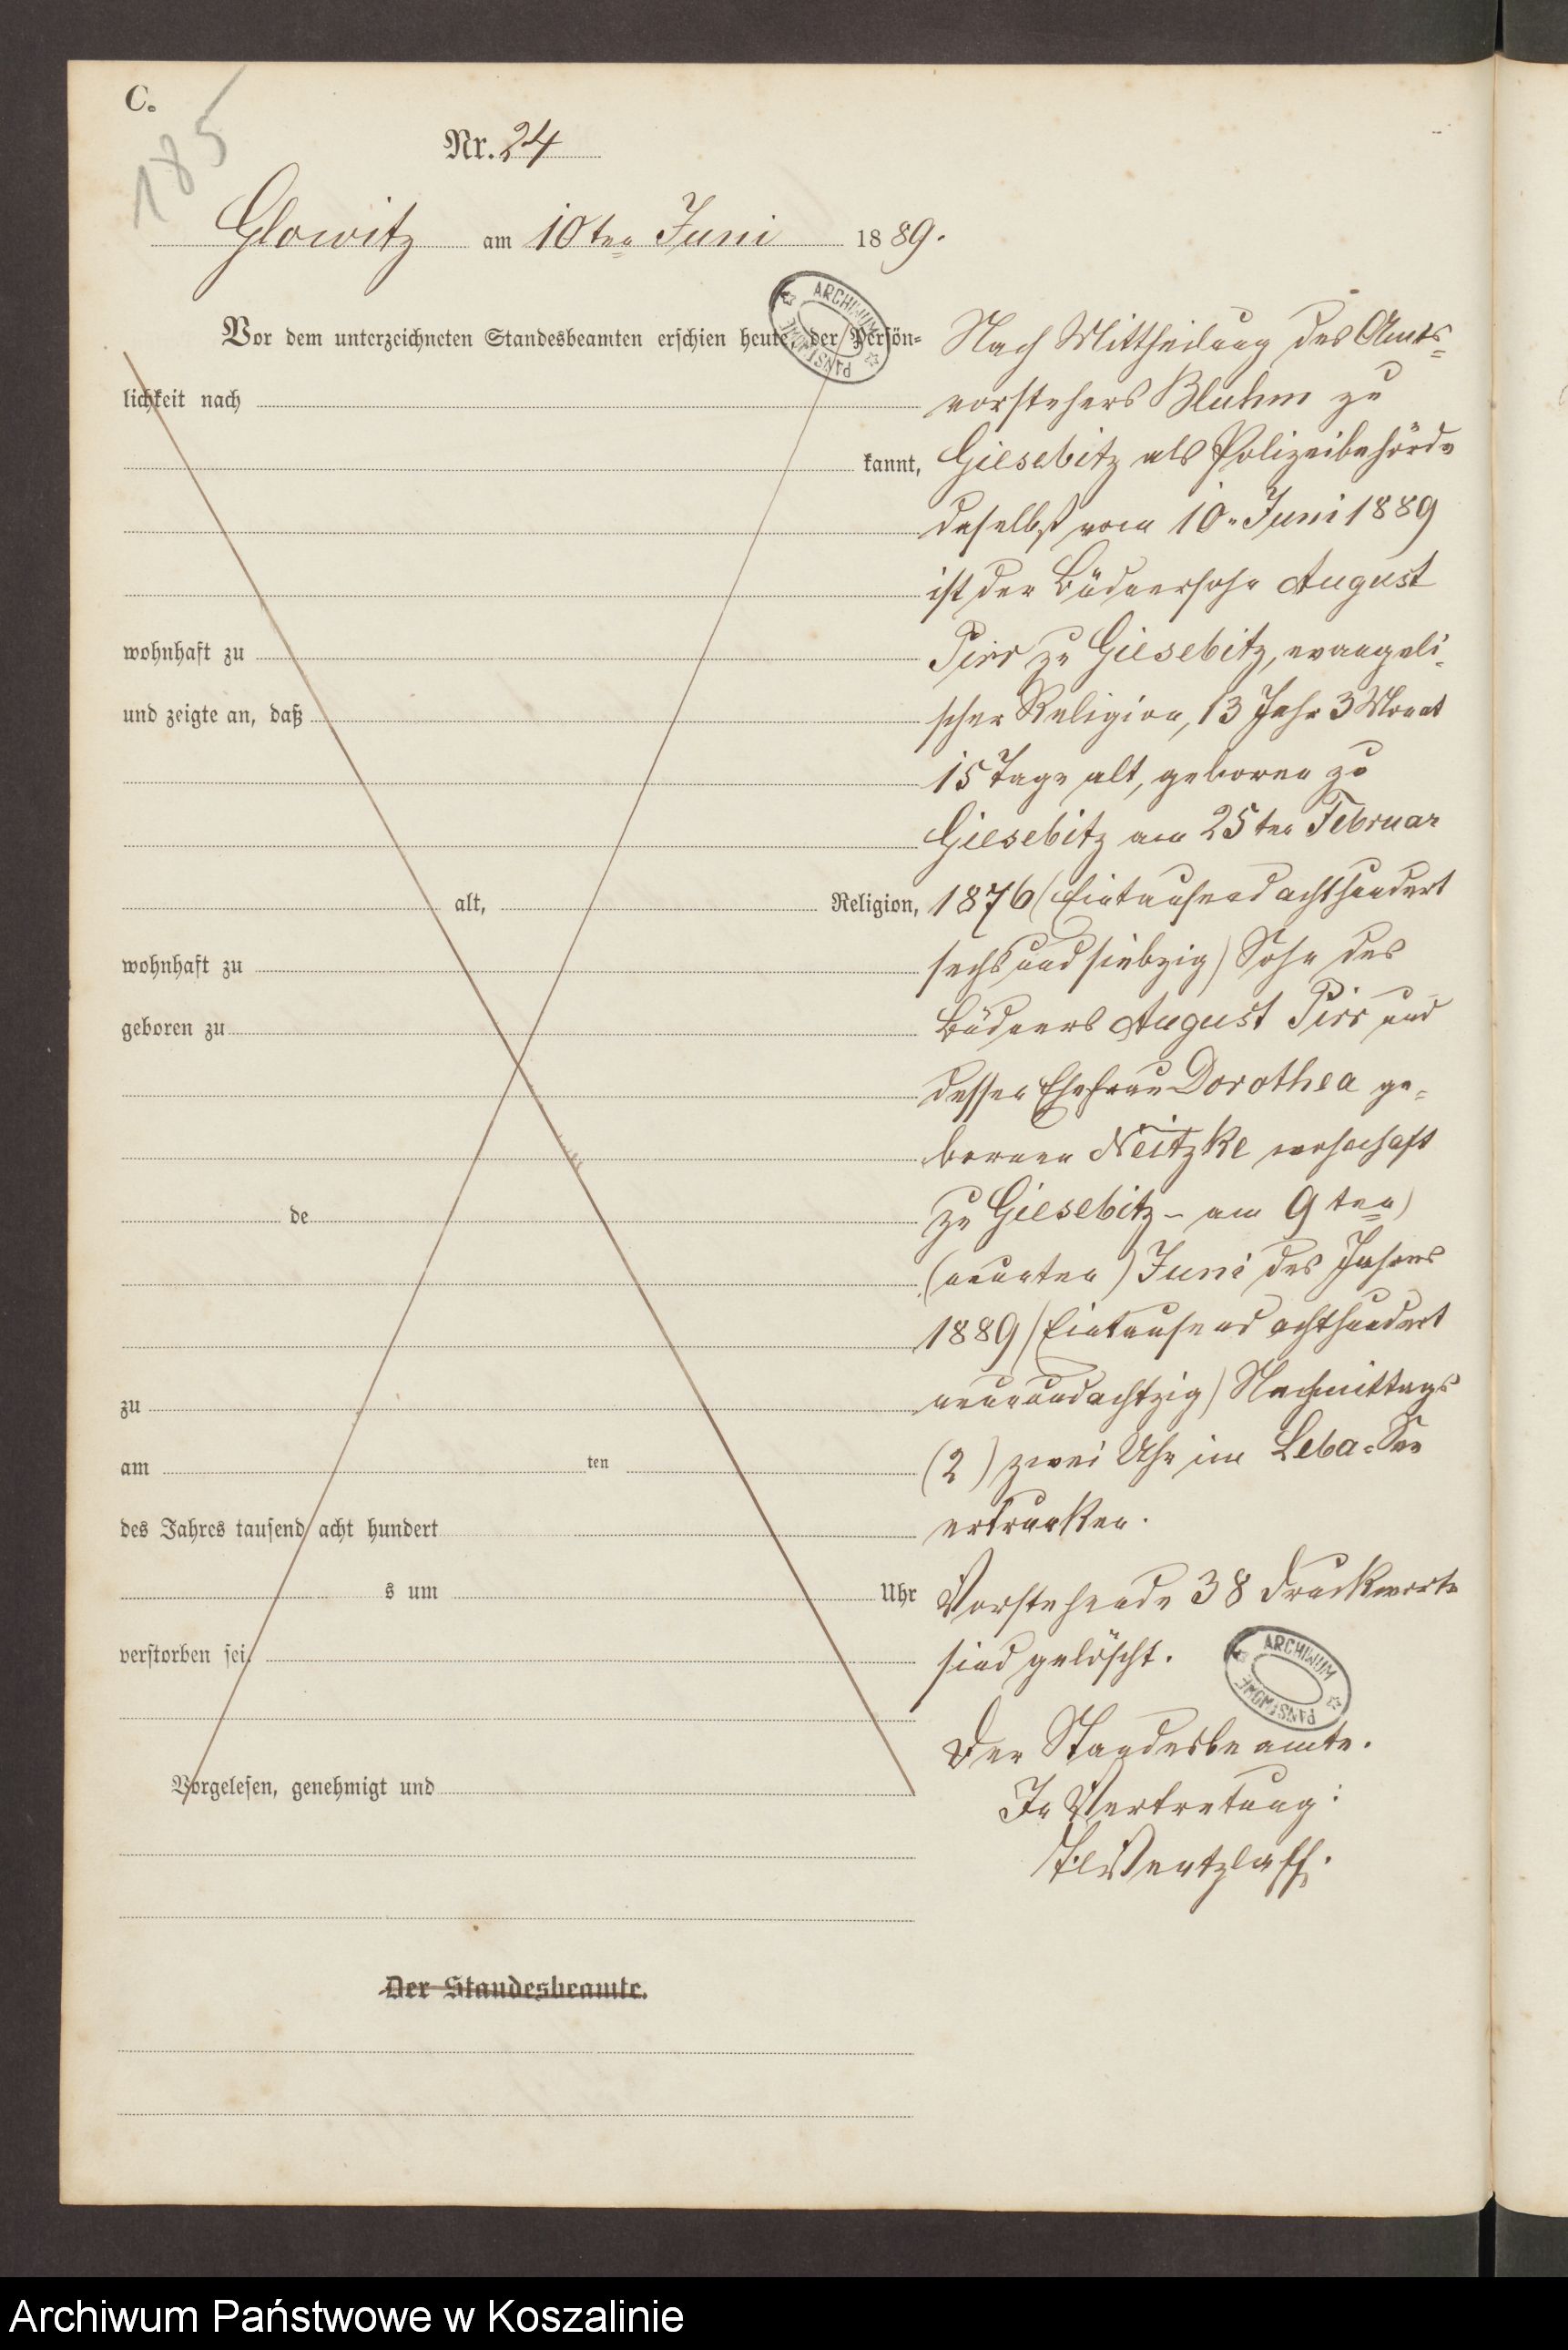 C.
185
Nr. 24
Glowitz am 10ten Juni 1889.
Vor dem unterzeichneten Standesbeamten erschien heute, der Persön-
lichkeit nach
kannt,
wohnhaft zu
und zeigte an, daß
alt, Religion,
wohnhaft zu
geboren zu
de
zu
am ten
des Jahres tausend acht hundert
s um Uhr
verstorben sei.
Vorgelesen, genehmigt und
Der Standesbeamte.
Nach Mittheilung des Amts-
vorstehers Bluhm zu
Giesebitz als Polizeibehörde
daselbst vom 10. Juni 1889
ist der Büdnersohn August
Pirr zu Giesebitz, evangeli-
scher Religion, 13 Jahr 3 Monat
15 Tage alt, geboren zu
Giesebitz am 25ten Februar
1876 (Eintausend achthundert
sechsundsiebzig) Sohn des
Büdners August Pirr und
dessen Ehefrau Dorothea ge-
bornen Neitzke wohnhaft
zu Giesebitz – am 9ten
(neunten) Juni des Jahres
1889 (Eintausend achthundert
neunundachtzig) Nachmittags
(2) zwei Uhr im Leba-See
ertrunken.
Vorstehende 38 Druckworte
sind gelöscht.
Der Standesbeamte.
In Vertretung:
Wentzlaff.
ARCHIWUM PAŃSTWOWE
ARCHIWUM PAŃSTWOWE
Archiwum Państwowe w Koszalinie